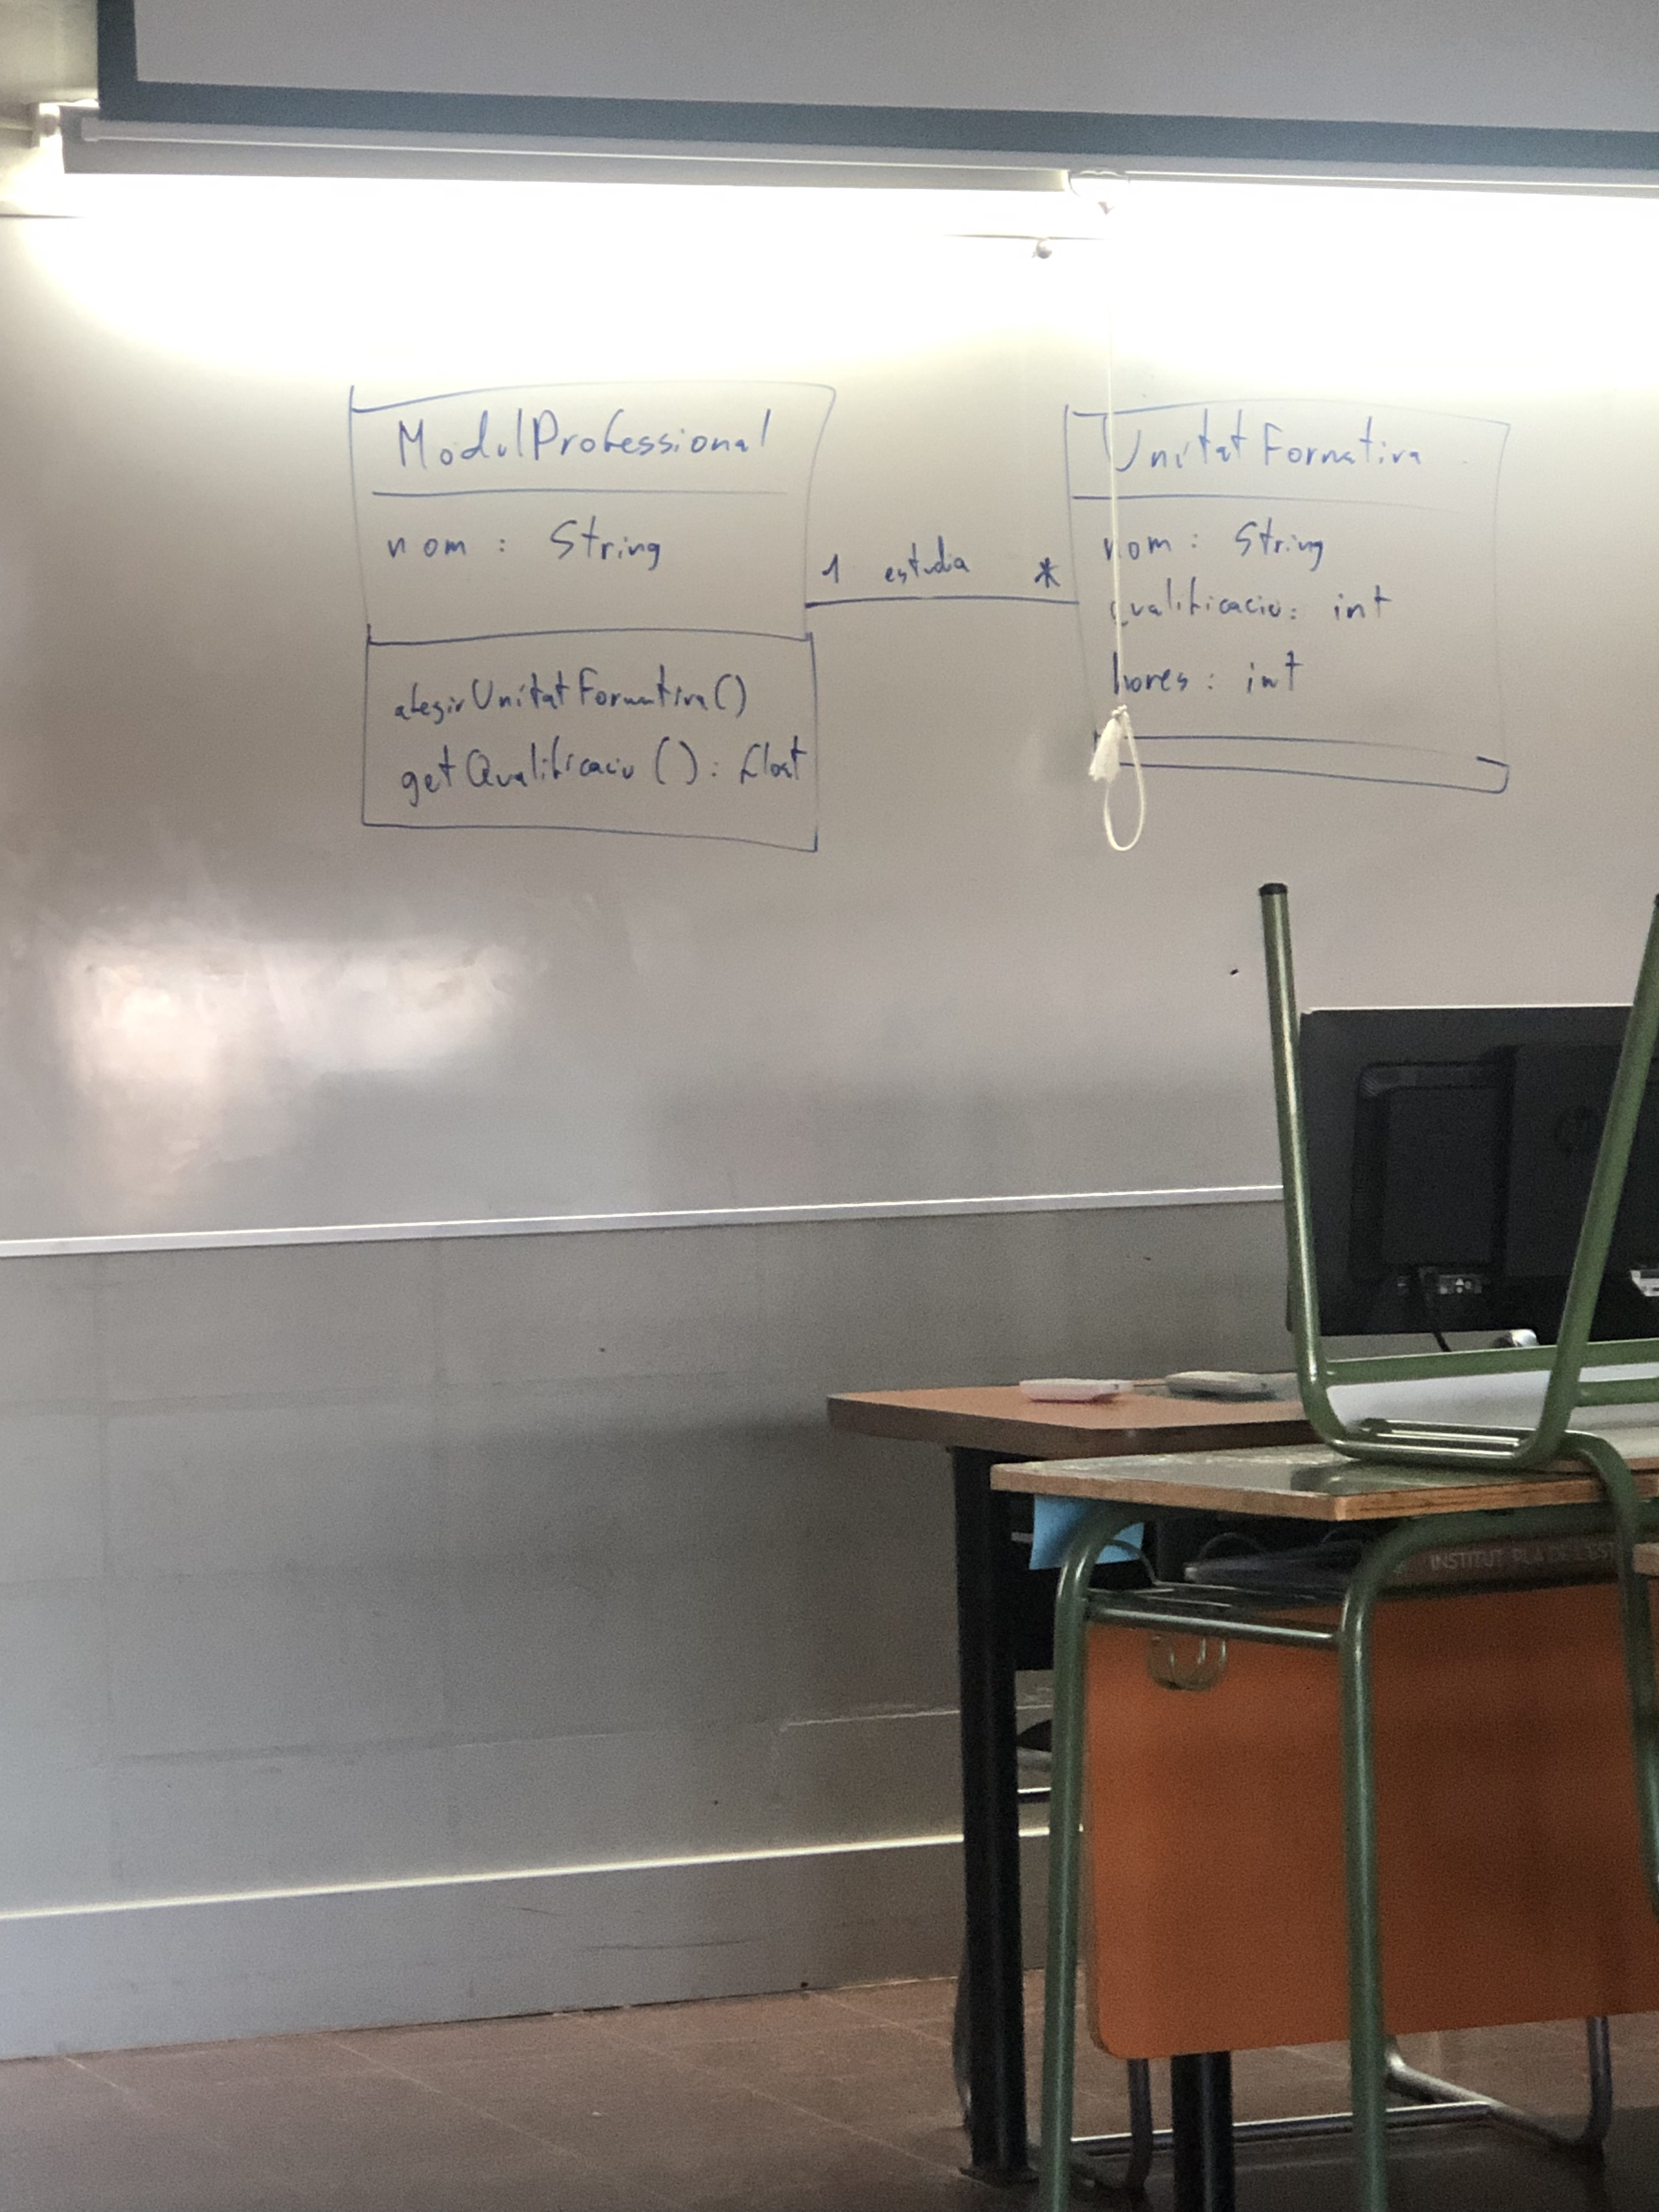 ModulProfessional
nom : String
afegirUnitatFormativa()
getQualificacio() : float
1 estudia *
UnitatFormativa
nom : String
qualificacio : int
hores : int
INSTITUT PLA DE L'EST